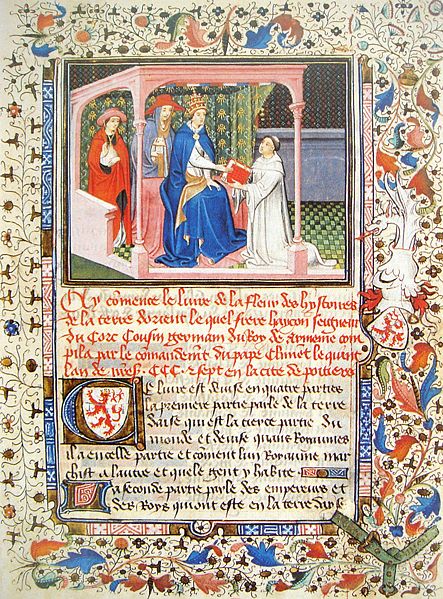 Cy cōmence le liure de la fleur des hystoires
de la terre dorient le quel frere haycon seigneur
du Corc Cousin germain du Roy de armenie com
pila par le comandemēt du pape Climēt le quint
lan de CCC. z sept en la cite de poitiers
Ce liure est deuise en quatre parties
la premiere partie parle de la terre
dasie qui est la tierce partie du
monde et deuise quans Royaumes
il a en celle partie et cōment lun Royaume mar
chist a lautre et quele gent y habite
La seconde partie parle des empereurs et
des Roys qui ont este en la terre dasie